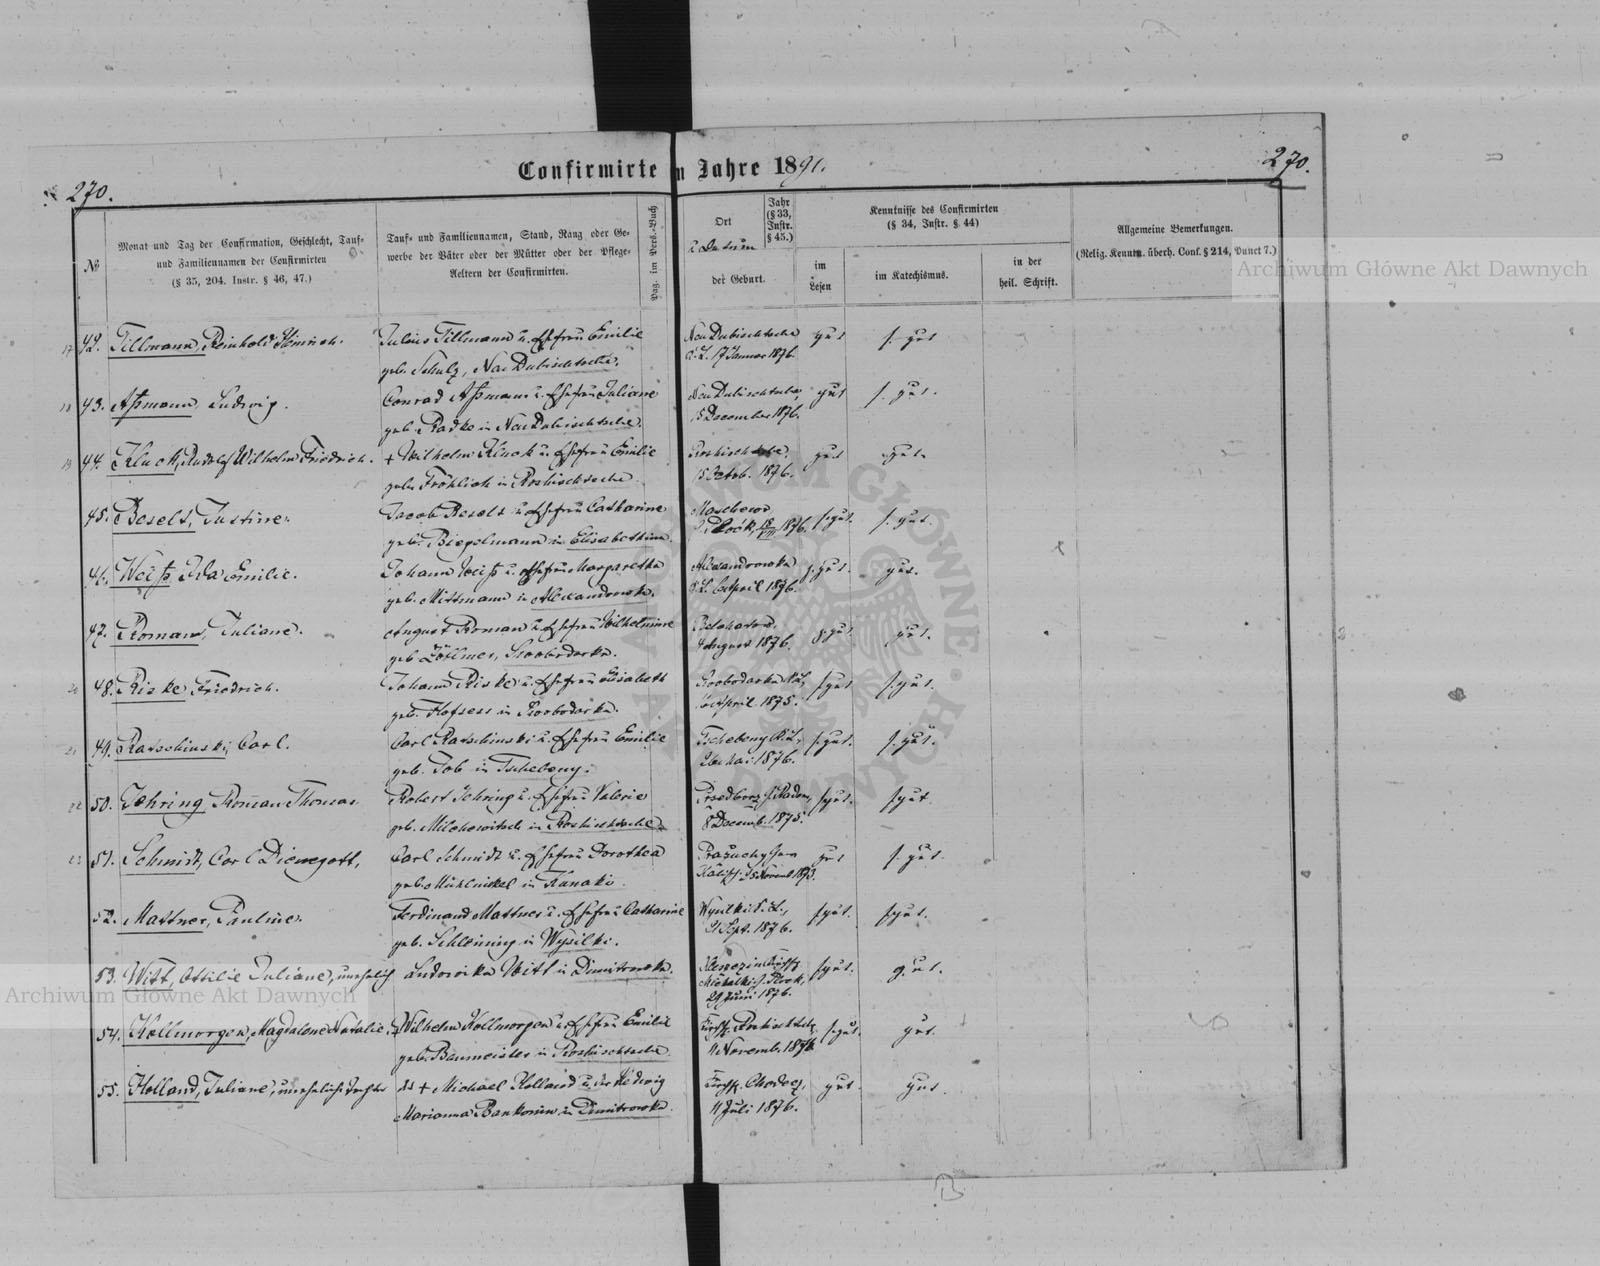 Confirmirte im Jahre 1891.
270.
270.
№
Monat und Tag der Confirmation, Geschlecht, Tauf-
und Familiennamen der Confirmirten
(§ 35, 204. Instr. § 46, 47.)
Tauf- und Familiennamen, Stand, Rang oder Ge-
werbe der Väter oder der Mütter oder der Pflege-
Aeltern der Confirmirten.
Pag. im Pers.-Buch
Ort
u Datum
der Geburt.
Jahr
(§ 33,
Instr.
§ 45.)
Kenntnisse des Confirmirten
(§ 34, Instr. § 44)
im
Lesen
im Katechismus.
in der
heil. Schrift.
Allgemeine Bemerkungen.
(Relig. Kenntn. überh. Conf. § 214, Punct 7.)
Archiwum Główne Akt Dawnych
17 42. Tillmann, Reinhold Heinrich. Julius Tillmann u. Ehefrau Emilie Neu Dubischtsche gut s. gut
geb. Schulz, Neu Dubischtsche. 17 Januar 1876.
18 43. Aßmann, Ludwig. Conrad Aßmann u. Ehefrau Juliane Neu Dubischtsche, gut s. gut.
geb. Radke in Neu Dubischtsche. 15 December 1876.
19 44. Kluck, Rudolf Wilhelm Friedrich. + Wilhelm Kluck u. Ehefrau Emilie Roshischtsche, gut gut.
geb. Fröhlich in Roshischtsche. 15 Octob. 1876.
45. Beselt, Justine. Jacob Beselt u. Ehefrau Catharine s. gut. s. gut.
geb. Biegelmann in Elisabethin. 1876.
46. Weiß, Ida Emilie. Johann Weiß u. Ehefrau Margaretha Alexandrowka s. gut. gut.
geb. Mittmann in Alexandrowka. 6 April 1876.
47. Roman, Juliane. August Roman u. Ehefrau Wilhelmine s. gut gut.
geb. Zöllmer, Swobodarka. August 1876.
20 48. Riske Friedrich. Johann Riske u. Ehefrau Elisabeth s. gut s. gut.
geb. Hofsess in Swobodarka. April 1875.
21 49. Ratschinski, Carl. Carl Ratschinski u. Ehefrau Emilie Tschebeny s. gut. s. gut.
geb. Job in Tschebeny. Mai 1876.
22 50. Jehring, Roman Thomas. Robert Jehring u. Ehefrau Valerie s. gut. s. gut
geb. Milchewitsch in Roshischtsche. 8 Decemb. 1875.
23 51. Schmidt, Carl Dienegott, Carl Schmidt u. Ehefrau Dorothea gut s. gut.
geb. Mühlnickel in Kanaki. Kalisch 1873.
52. Mattner, Pauline. Ferdinand Mattner u. Ehefrau Catharine s. gut. s. gut.
geb. Schlenning in Wysilki. 21 Sept. 1876.
53. Witt, Ottilie Juliane, unehelich Ludowika Witt in Dimitrowka. s. gut. gut.
29 Juni 1876.
Archiwum Główne Akt Dawnych
54. Kollmorgen, Magdalene Natalie. + Wilhelm Kollmorgen u. Ehefrau Emilie s. gut. gut.
geb. Baumeister in Roshischtsche. 11 Novemb.
55. Holland, Juliane, uneheliche Tochter des + Michael Holland u. der Hedwig Chodecz, gut. gut.
Marianna Bankonin in Dimitrowka. 11 Juli 1876.